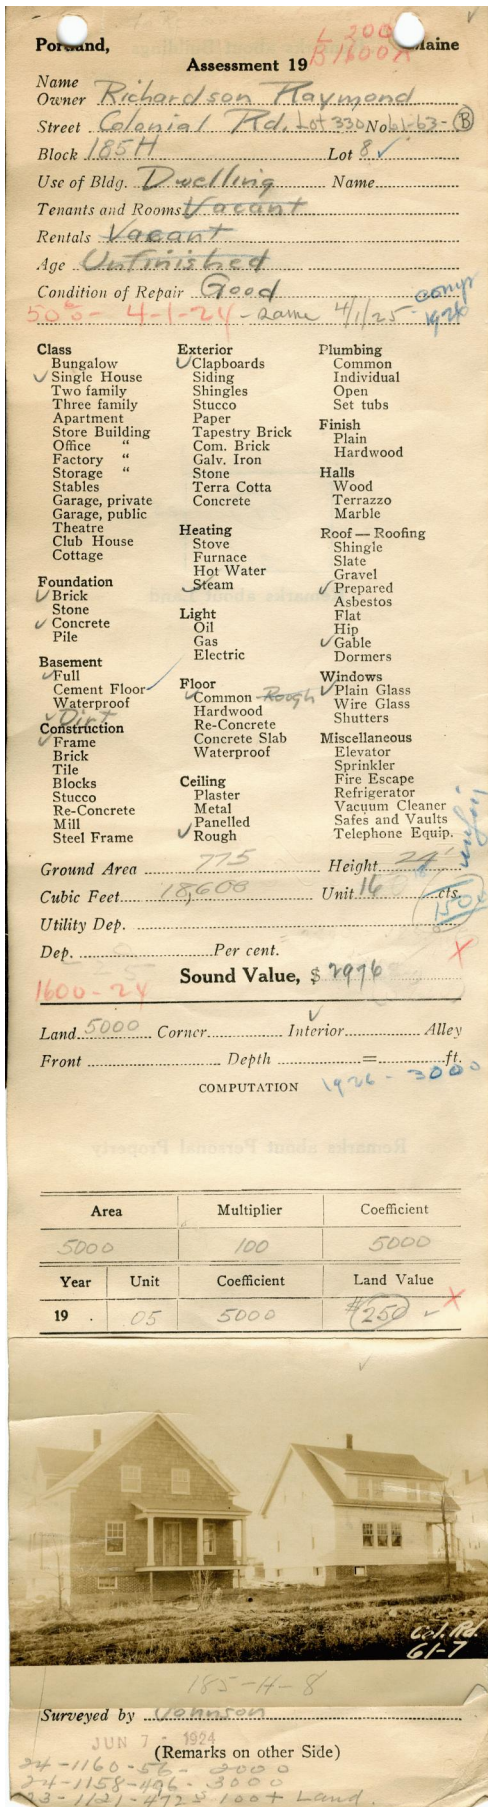 L 200
B 1600 A
Portland, Maine
Assessment 19
Name
Owner Richardson Raymond
Street Colonial Rd. Lot 330 No. 61-63- B
Block 185H Lot 8 ✓
Use of Bldg. Dwelling Name
Tenants and Rooms Vacant
Rentals Vacant
Age Unfinished
Condition of Repair Good
50% - 4-1-24 - same 4/1/25 - comp 1926
Class
Bungalow
✓ Single House
Two family
Three family
Apartment
Store Building
Office "
Factory "
Storage "
Stables
Garage, private
Garage, public
Theatre
Club House
Cottage
Foundation
✓ Brick
Stone
✓ Concrete
Pile
Basement
✓ Full
Cement Floor ✓
Waterproof
✓ Dirt
Construction
✓ Frame
Brick
Tile
Blocks
Stucco
Re-Concrete
Mill
Steel Frame
Exterior
✓ Clapboards
Siding
Shingles
Stucco
Paper
Tapestry Brick
Com. Brick
Galv. Iron
Stone
Terra Cotta
Concrete
Heating
Stove
Furnace
Hot Water
✓ Steam
Light
Oil
Gas
Electric
Floor
✓ Common Rough
Hardwood
Re-Concrete
Concrete Slab
Waterproof
Ceiling
Plaster
Metal
Panelled
✓ Rough
Plumbing
Common
Individual
Open
Set tubs
Finish
Plain
Hardwood
Halls
Wood
Terrazzo
Marble
Roof — Roofing
Shingle
Slate
Gravel
✓ Prepared
Asbestos
Flat
Hip
✓ Gable
Dormers
Windows
✓ Plain Glass
Wire Glass
Shutters
Miscellaneous
Elevator
Sprinkler
Fire Escape
Refrigerator
Vacuum Cleaner
Safes and Vaults
Telephone Equip.
Ground Area 775 Height 24'
Cubic Feet 18,600 Unit 16 cts.
Utility Dep.
Dep. Per cent.
Sound Value, $ 2976
1600-24
Land 5000 Corner Interior ✓ Alley
Front Depth = ft.
COMPUTATION 1926 - 3000
Area Multiplier Coefficient
5000 100 5000
Year Unit Coefficient Land Value
19 . 05 5000 $250 ✓ X
Col. Rd.
61-7
185-H-8
Surveyed by Johnson
JUN 7 - 1924
(Remarks on other Side)
24-1160-56- 2000
24-1158-496- 3000
23-1121-472 5 100+ Land.